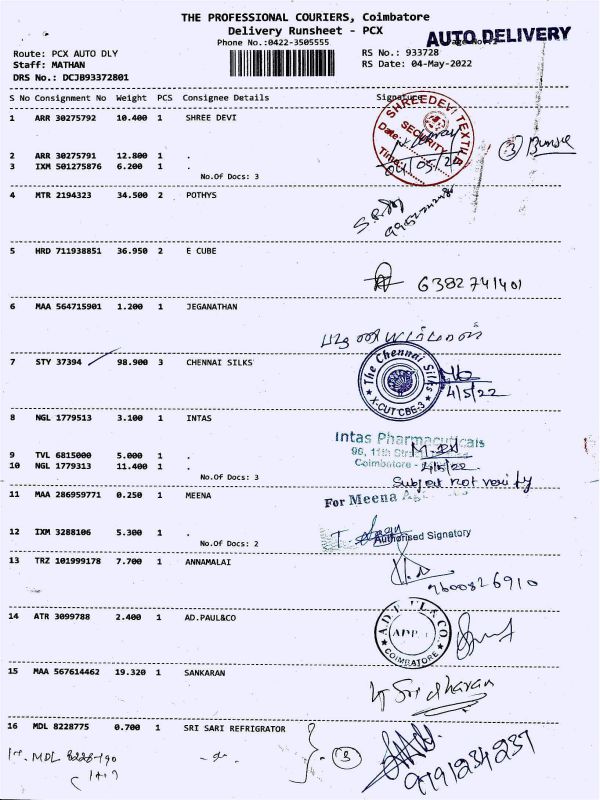 THE PROFESSIONAL COURIERS, Coimbatore
Delivery Runsheet - PCX
AUTO DELIVERY
Phone No.:0422-3505555
Route: PCX AUTO DLY
RS No.: 933728
Staff: MATHAN
RS Date: 04-May-2022
DRS No.: DCJB93372801
S No Consignment No Weight PCS Consignee Details Signature
1 ARR 30275792 10.400 1 SHREE DEVI
SHREEDEVI TEXTILE
SECURITY
Date:
Time:
04/05/22
3
2 ARR 30275791 12.800 1 .
3 IXM 501275876 6.200 1 .
No.Of Docs: 3
4 MTR 2194323 34.500 2 POTHYS
5 HRD 711938851 36.950 2 E CUBE
6382741401
6 MAA 564715901 1.200 1 JEGANATHAN
7 STY 37394 98.900 3 CHENNAI SILKS
The Chennai Silks
X-CUT CBE-3
4/5/22
8 NGL 1779513 3.100 1 INTAS
Intas Pharmaceuticals
96, 11th
9 TVL 6815000 5.000 1 .
Coimbatore
4/5/22
10 NGL 1779313 11.400 1 .
Subject not verify
No.Of Docs: 3
11 MAA 286959771 0.250 1 MEENA
For Meena
12 IXM 3288106 5.300 1 .
Authorised Signatory
No.Of Docs: 2
13 TRZ 101999178 7.700 1 ANNAMALAI
9600826910
14 ATR 3099788 2.400 1 AD.PAUL&CO
COIMBATORE
15 MAA 567614462 19.320 1 SANKARAN
Sridharan
16 MDL 8228775 0.700 1 SRI SARI REFRIGRATOR
MDL 8228790
3
9791234237